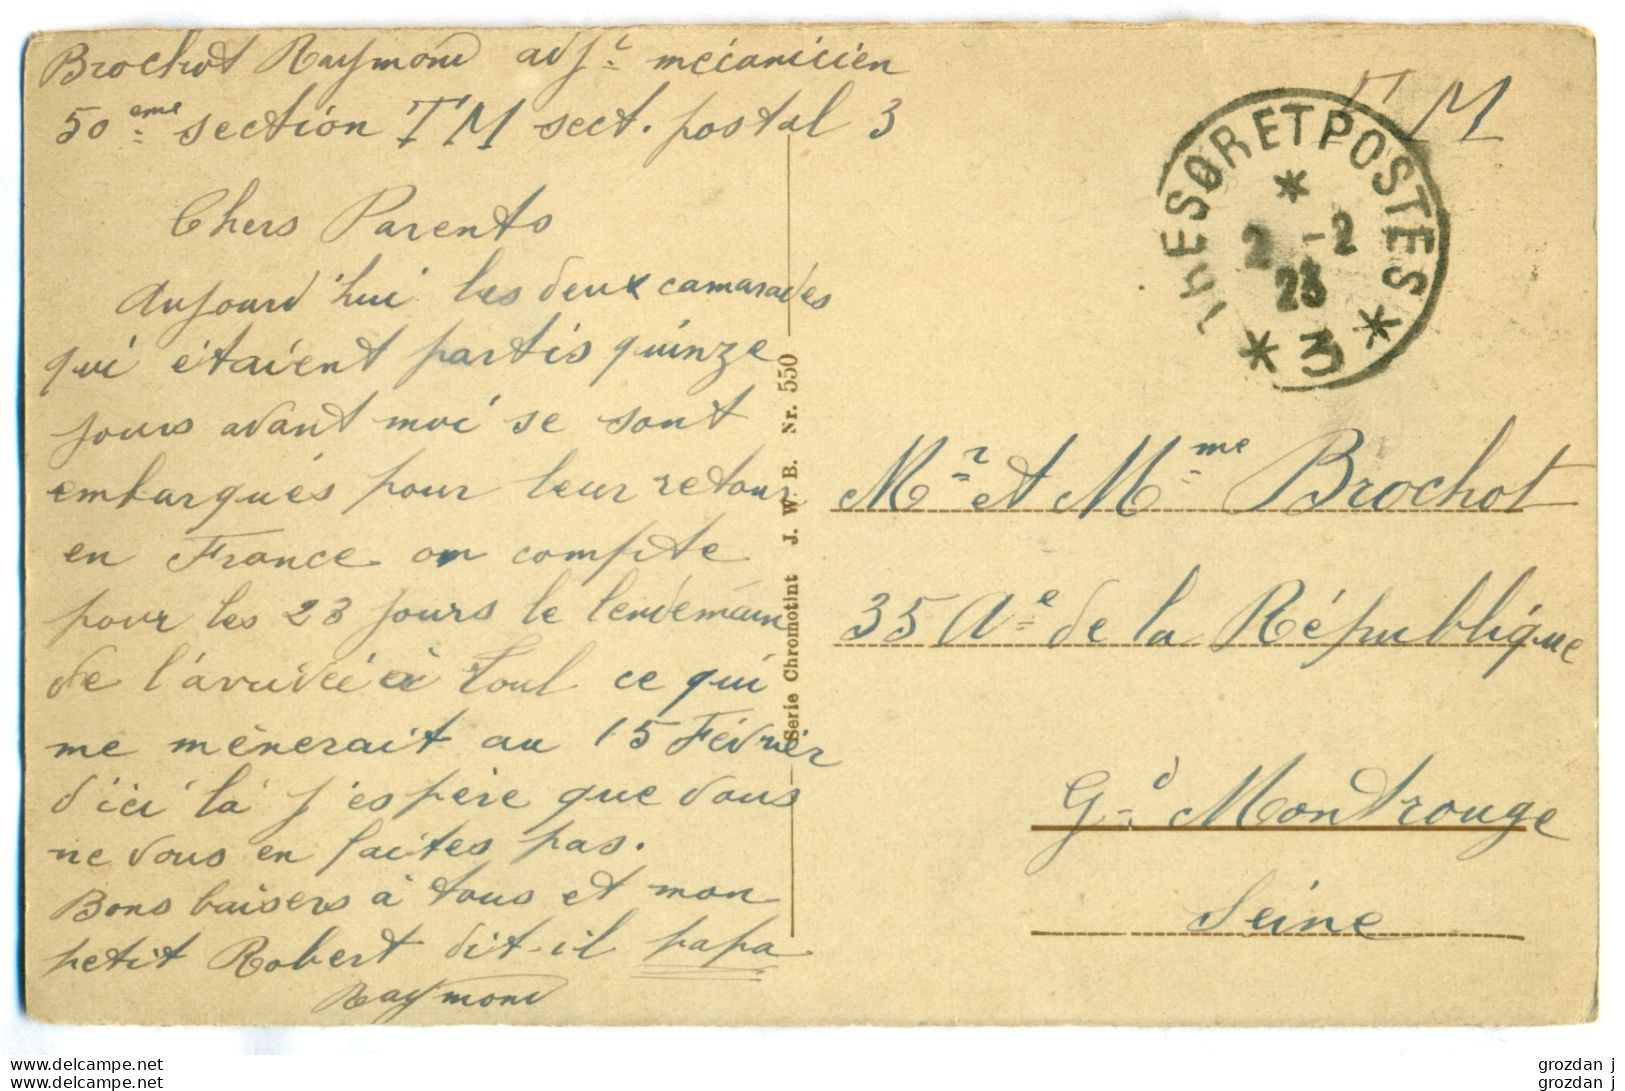 Brochot Raymond adjt mécanicien
50eme section TM sect. postal 3
Chers Parents
Aujourd'hui les deux camarades
qui étaient partis quinze
jours avant moi se sont
embarqués pour leur retour
en France on compte
pour les 23 jours le lendemain
de l'arrivée à Toul ce qui
me mènerait au 15 Février
d'ici là j'espère que vous
ne vous en faites pas.
Bons baisers à tous et mon
petit Robert dit-il papa
Raymond
Serie Chromotint J. W. B. Nr. 550
TM
TRESOR ET POSTES
2 -2
23
* 3 *
Mr et Mme Brochot
35 Ae de la République
Gd Montrouge
Seine
www.delcampe.net
www.delcampe.net
grozdan j
grozdan j